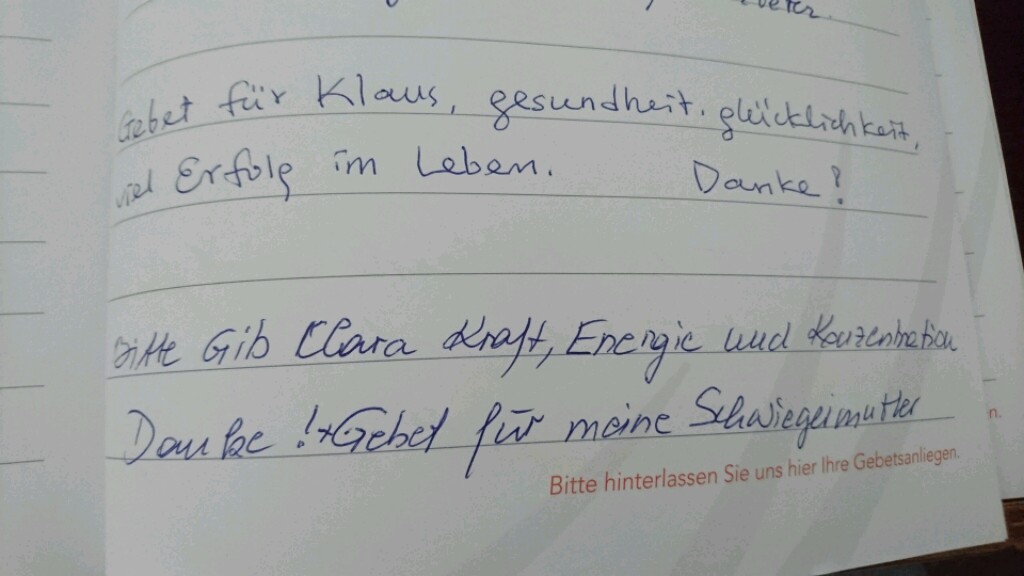 Gebet für Klaus, gesundheit. glücklichkeit,
viel Erfolg im Leben. Danke!
Bitte Gib Clara Kraft, Energie und Konzentration
Danke !+Gebet für meine Schwiegermutter
Bitte hinterlassen Sie uns hier Ihre Gebetsanliegen.
n.